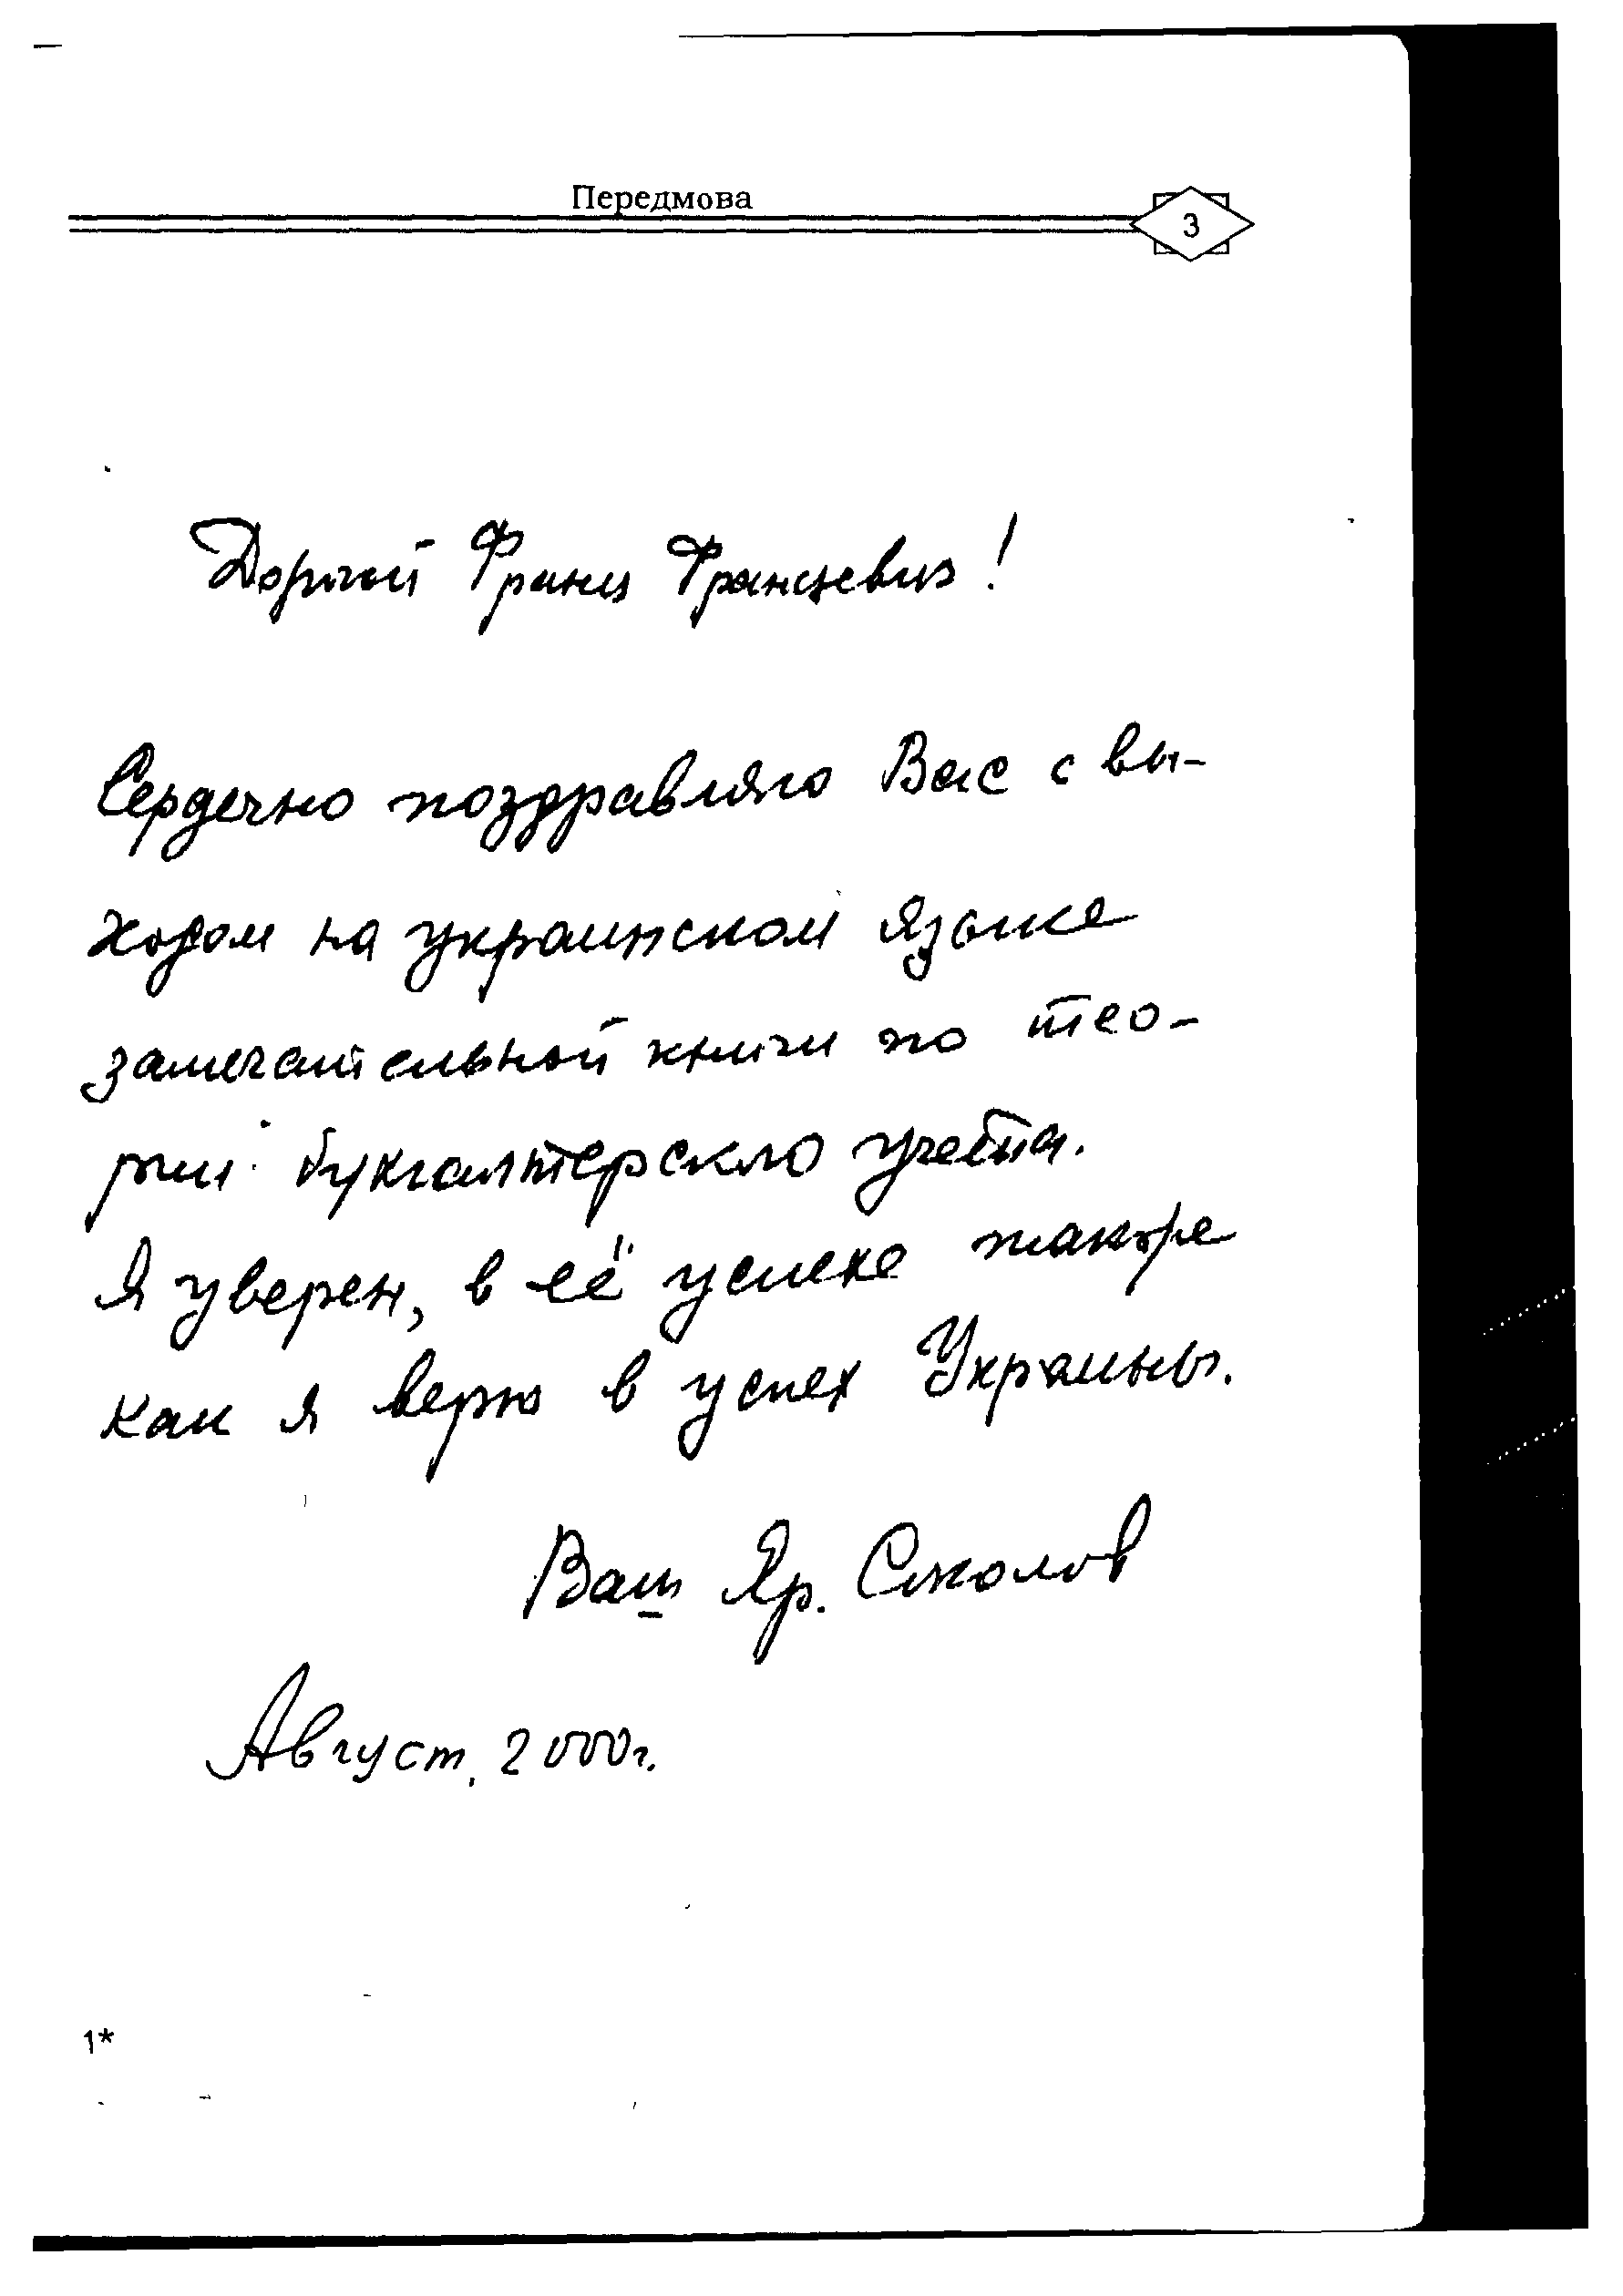 Передмова
3
Дорогой Франц Францевич!
Сердечно поздравляю Вас с вы-
ходом на украинском языке
замечательной книги по тео-
рии бухгалтерского учета.
Я уверен, в её успехе также
как я верю в успех Украины.
Ваш Яр. Соколов
Август, 2000г.
1*